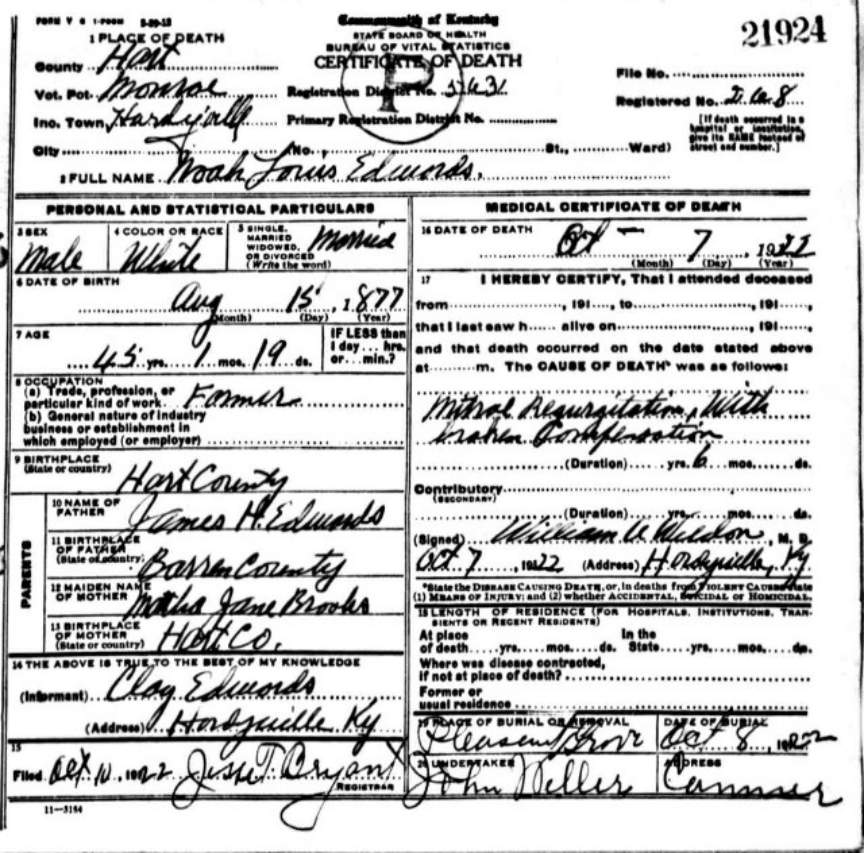 FORM V S 1-500M 5-29-12
Commonwealth of Kentucky
STATE BOARD OF HEALTH
BUREAU OF VITAL STATISTICS
CERTIFICATE OF DEATH
21924
P
1 PLACE OF DEATH
County Hart
Vot. Pct. Monroe
Inc. Town Hardyville
City (No. , St., Ward)
Registration District No. 5631
Primary Registration District No.
File No.
Registered No.
[If death occurred in a hospital or institution, give its NAME instead of street and number.]
2 FULL NAME Noah Louis Edwards.
PERSONAL AND STATISTICAL PARTICULARS
3 SEX
Male
4 COLOR OR RACE
White
5 SINGLE, MARRIED WIDOWED, OR DIVORCED (Write the word)
Married
6 DATE OF BIRTH
Aug 15, 1877
(Month) (Day) (Year)
7 AGE
45 yrs. 1 mos. 19 ds.
IF LESS than
1 day... hrs.
or... min.?
8 OCCUPATION
(a) Trade, profession, or
particular kind of work Farmer
(b) General nature of industry
business or establishment in
which employed (or employer)
9 BIRTHPLACE
(State or country)
Hart County
PARENTS
10 NAME OF FATHER
James H. Edwards
11 BIRTHPLACE OF FATHER
(State or country)
Barren County
12 MAIDEN NAME OF MOTHER
Martha Jane Brooks
13 BIRTHPLACE OF MOTHER
(State or country)
Hart Co.
14 THE ABOVE IS TRUE TO THE BEST OF MY KNOWLEDGE
(Informant) Clay Edwards
(Address) Hardyville Ky
15
Filed Oct 10, 1922 Jesse T. Bryant
REGISTRAR
11—3184
MEDICAL CERTIFICATE OF DEATH
16 DATE OF DEATH
Oct - 7, 1922
(Month) (Day) (Year)
17 I HEREBY CERTIFY, That I attended deceased
from , 191 , to , 191 ,
that I last saw h alive on , 191 ,
and that death occurred on the date stated above
at m. The CAUSE OF DEATH* was as follows:
Mitral Regurgitation, With
broken Compensation
(Duration) yrs. 6 mos. ds.
Contributory
(SECONDARY)
(Duration) yrs. mos. ds.
(Signed) William , M. D.
Oct 7, 1922 (Address) Hardyville, Ky
*State the DISEASE CAUSING DEATH, or, in deaths from VIOLENT CAUSES state
(1) MEANS OF INJURY; and (2) whether ACCIDENTAL, SUICIDAL or HOMICIDAL.
18 LENGTH OF RESIDENCE (FOR HOSPITALS, INSTITUTIONS, TRANSIENTS OR RECENT RESIDENTS)
At place of death yrs. mos. ds. In the State yrs. mos. ds.
Where was disease contracted,
if not at place of death?
Former or
usual residence
19 PLACE OF BURIAL OR REMOVAL
Pleasant Grove
DATE OF BURIAL
Oct 8, 1922
20 UNDERTAKER
John
ADDRESS
Canmer